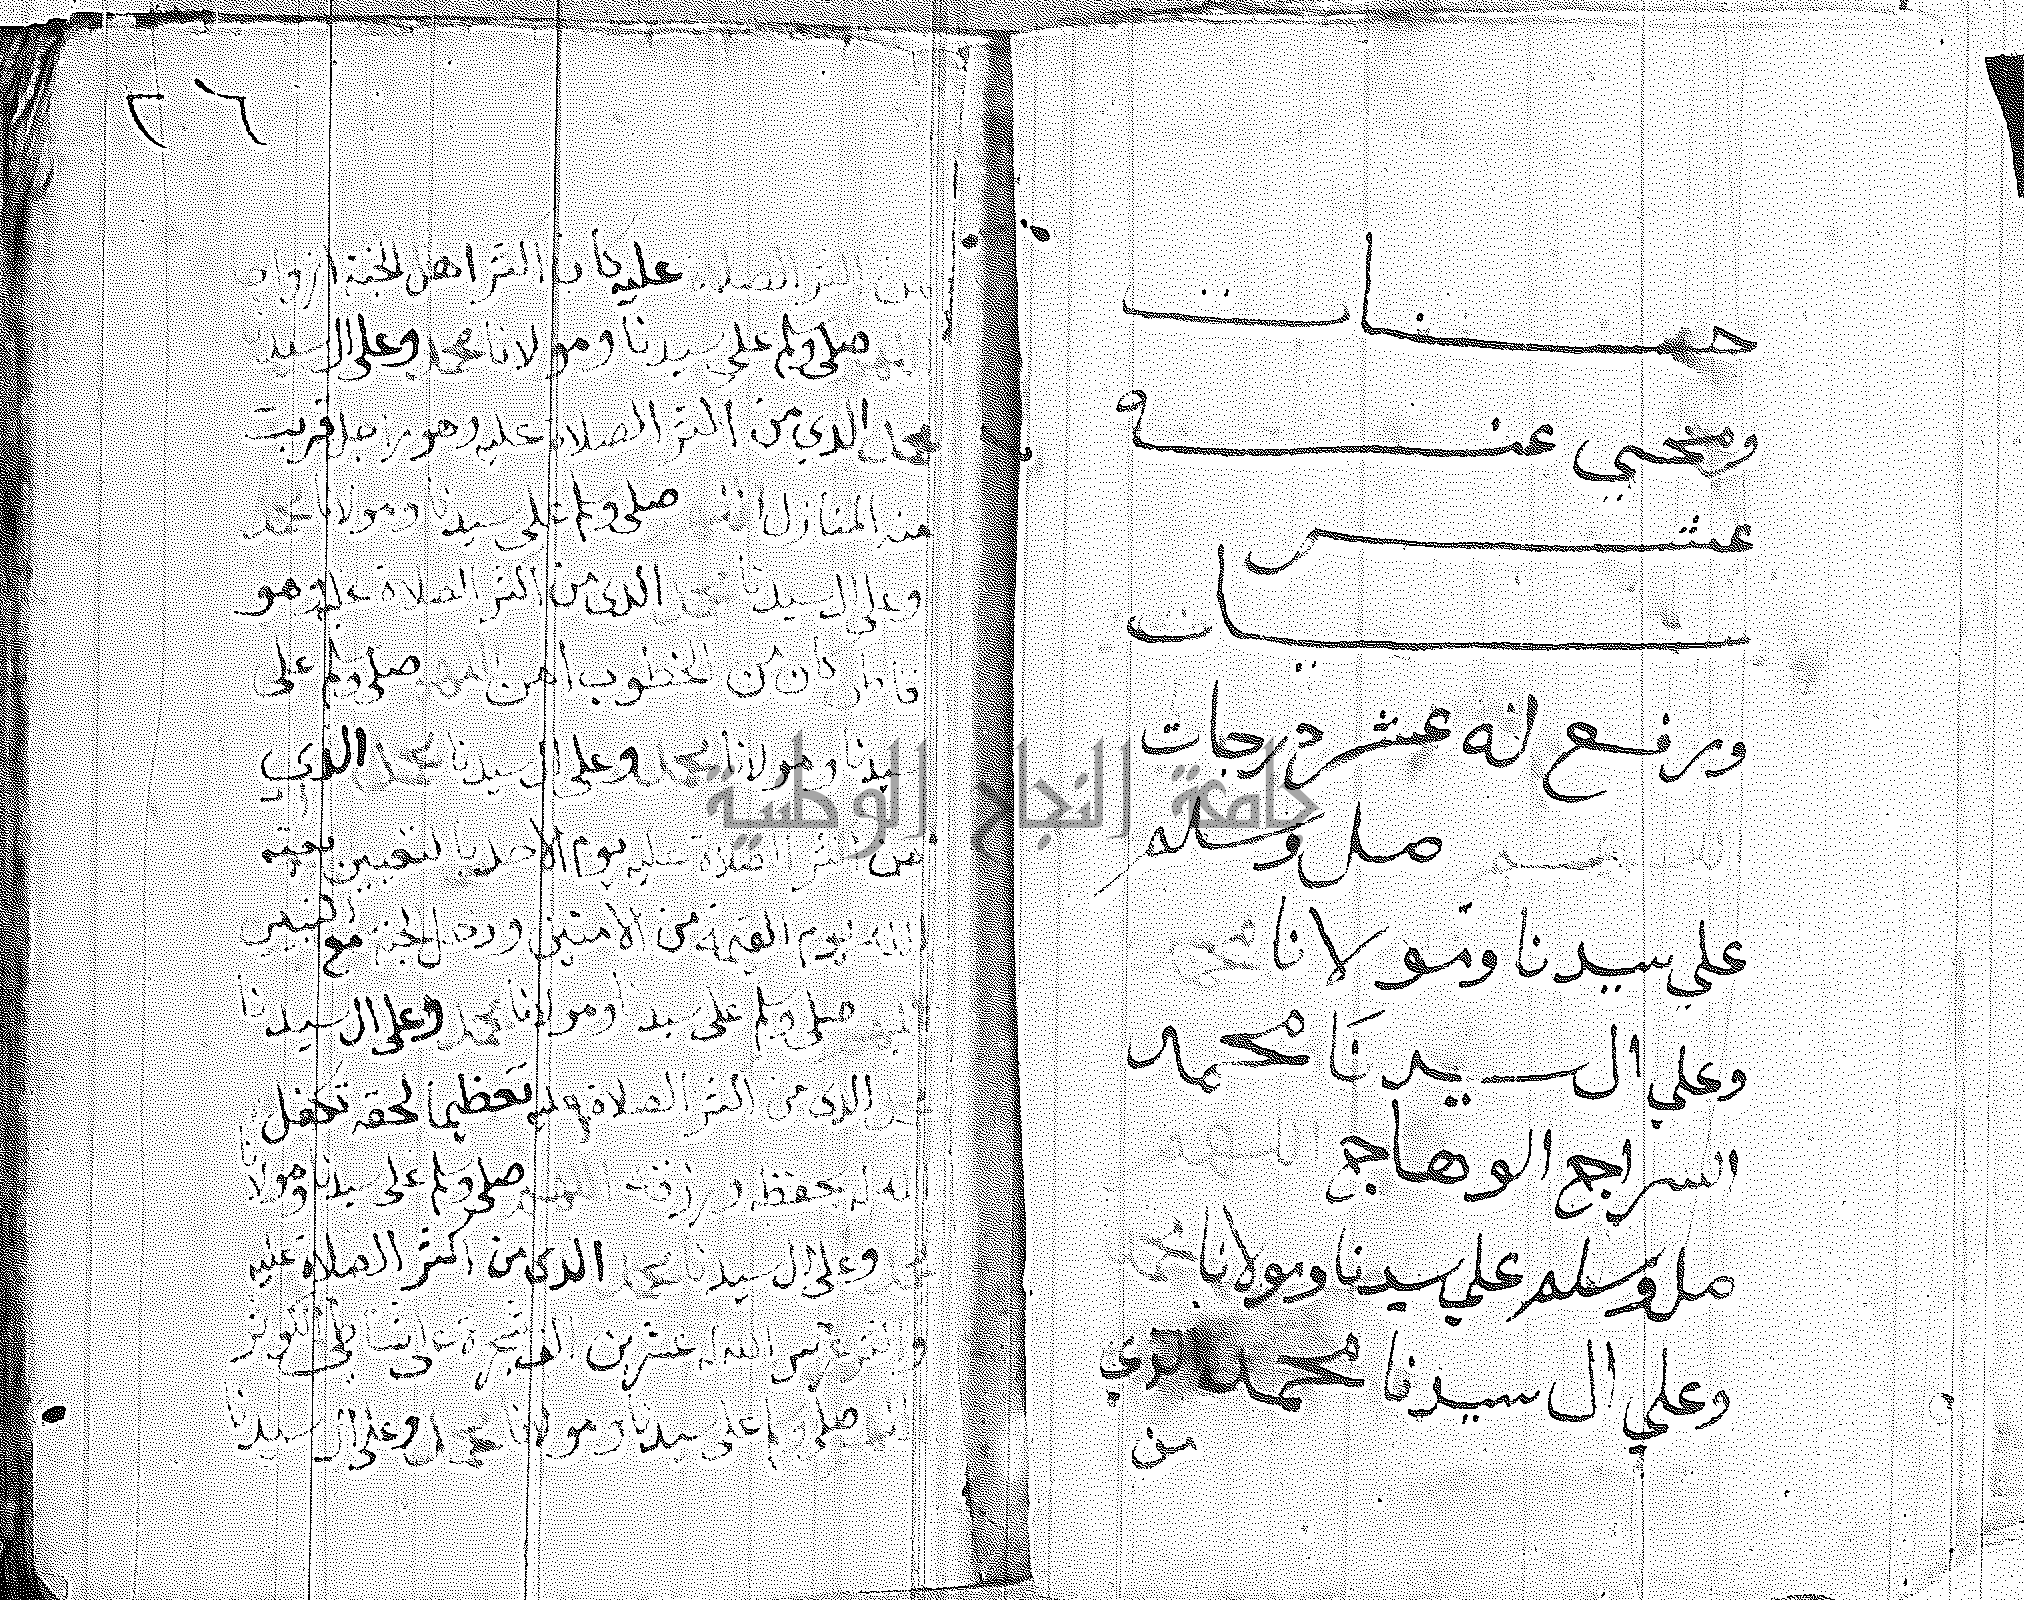 حسنات
ومحي عنه
عشر
سيات
ورفع له عشر درجات
اللهم صل وسلم
على سيدنا ومولانا محمد
وعلي ال سيدنا محمد
السراج الوهاج اللهم
صل وسلم علي سيدنا ومولانا محمد
وعلي ال سيدنا محمد الذي
من
٢٦
من اكثر الصلاة عليه كان اكثر اهل الجنة ازواجا
اللهم صلي وسلم علي سيدنا ومولانا محمد وعلى ال سيدنا
محمد الذي من اكثر الصلاة عليه وهو
المنازل اللهم صلي وسلم علي سيدنا ومولانا محمد
وعلي ال سيدنا محمد الذي من اكثر الصلاة عليه وهو
كان من الخطوب امن اللهم صلي وسلم على
سيدنا ومولانا محمد وعلي ال سيدنا محمد الذي
من اكثر الصلاة عليه يوم الاحد
الله يوم القيمة من الامنين ودخل الجنة مع
اللهم صلي وسلم علي سيدنا ومولانا محمد وعلي ال سيدنا
محمد الذي من اكثر الصلاة عليه تعظيما لحقه تكفل
الله له بحفظه ورزقه اللهم صلي وسلم علي سيدنا ومولانا
محمد وعلي ال سيدنا محمد الذي من اكثر الصلاة عليه
الله له عشرين الف شجرة
اللهم صلي وسلم علي سيدنا ومولانا محمد وعلي ال سيدنا
جامعة النجاح الوطنية